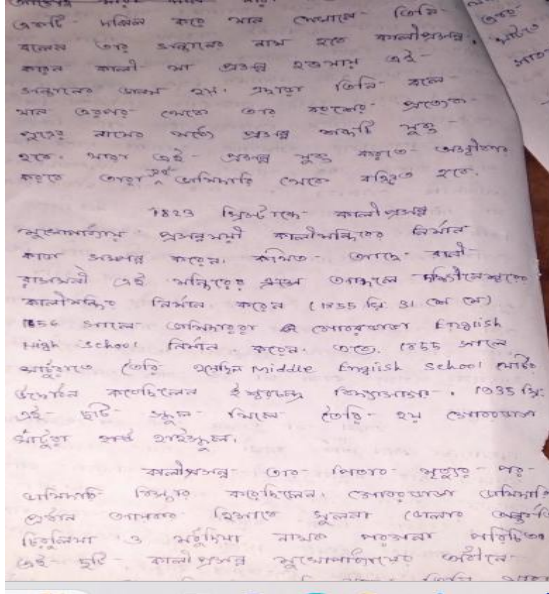 একটি দলিল করে যান সেখানে তিনি
বলেন তার সন্তানের নাম হবে কালীপ্রসন্ন,
কারন কালী মা প্রসন্ন হওয়ায় এই
সন্তানের জন্ম হয়। এছাড়া তিনি বলে
যান এরপর থেকে তার বংশের প্রত্যেক
পুত্রের নামের সাথে প্রসন্ন শব্দটি যুক্ত
হবে। যারা এই প্রসন্ন যুক্ত করতে অস্বীকার
করবে তারা এই জমিদারি থেকে বঞ্চিত হবে।
1823 খ্রিস্টাব্দে কালীপ্রসন্ন
মুখোপাধ্যায় প্রসন্নময়ী কালীমন্দিরের নির্মান
কাজ সম্পন্ন করেন। কথিত আছে রানী
রাসমনী এই মন্দিরের দক্ষিনেশ্বরের
কালীমন্দির নির্মান করেন (1855 খ্রি 31 শে মে)
1856 সালে জমিদাররা গোবরডাঙ্গা English
High School নির্মান করেন। 1855 সালে
খাঁটুরাতে তৈরি হয়েছিল Middle English School যেটির
উদ্বোধন করেছিলেন ঈশ্বরচন্দ্র বিদ্যাসাগর। 1935 খ্রি:
এই দুটি স্কুল মিলে তৈরি হয় গোবরডাঙ্গা
খাঁটুরা হাইস্কুল।
কালীপ্রসন্ন তার পিতার মৃত্যুর পর
জমিদারি বিস্তার করেছিলেন। গোবরডাঙ্গা জমিদারি
প্রধান হিসাবে খুলনা জেলার
ও নামক পরগনা পরিচিত
এই দুটি কালীপ্রসন্ন মুখোপাধ্যায়ের অধীনে